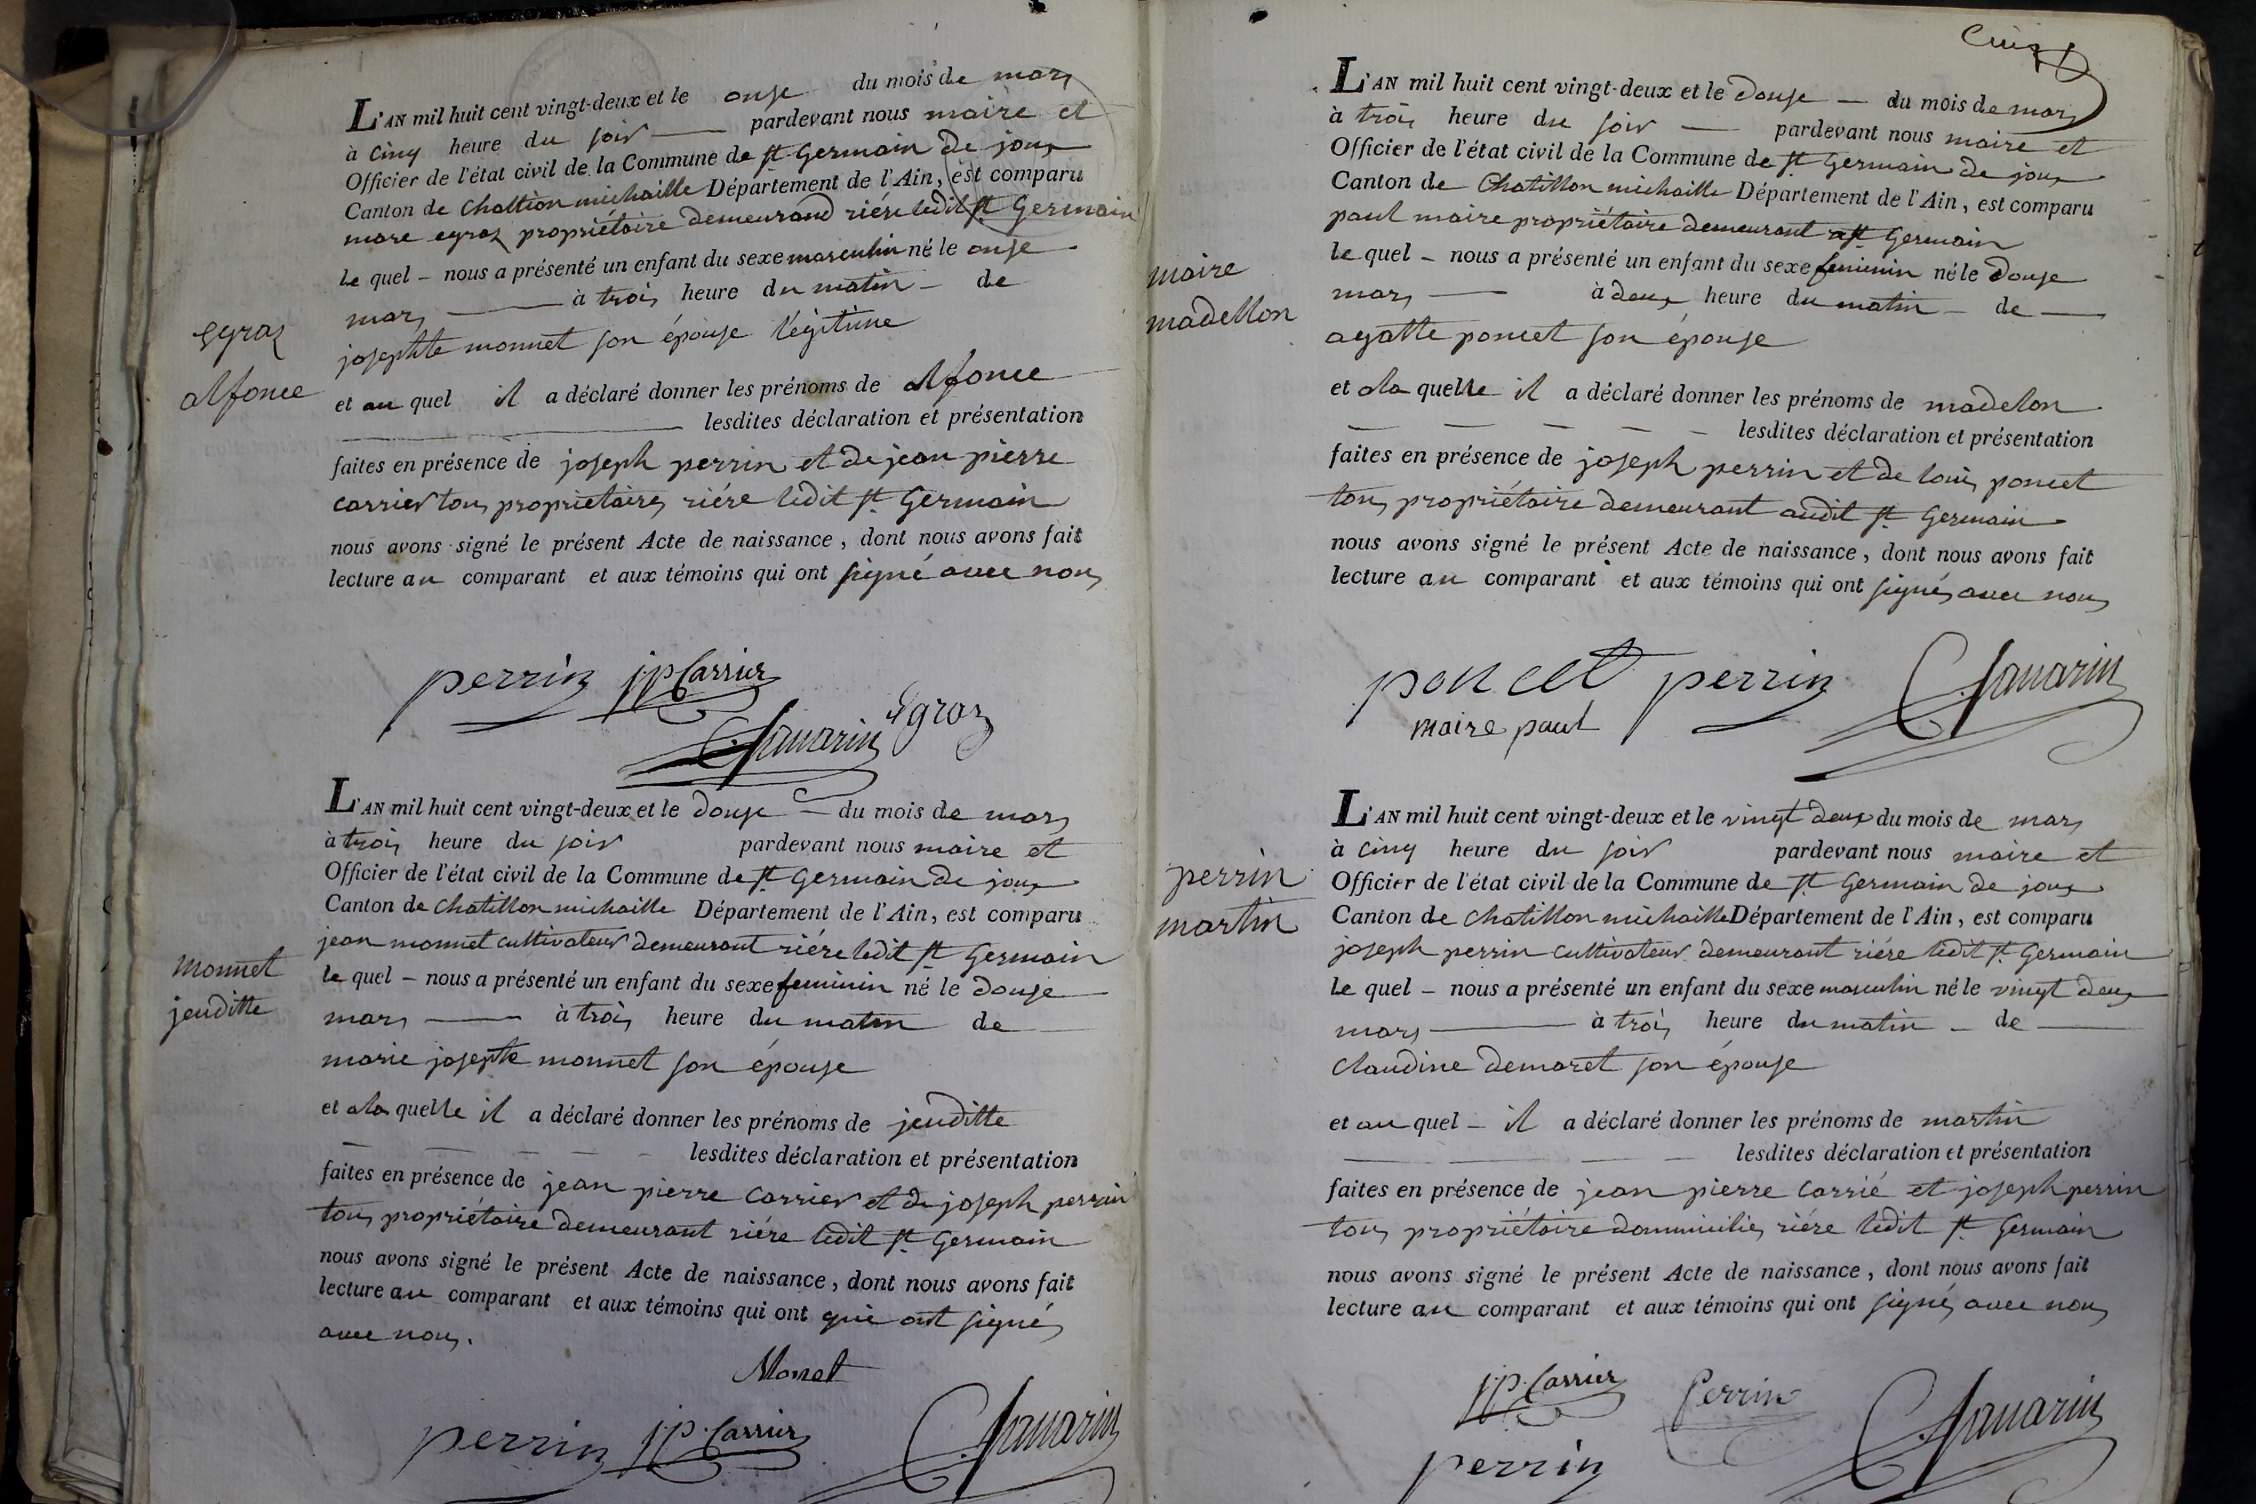 L'AN mil huit cent vingt-deux et le onze du mois de mars
à cinq heure du soir pardevant nous maire et
Officier de l'état civil de la Commune de St. Germain de joux
Canton de chattion michaille Département de l'Ain, est comparu
marc egraz propriétaire demeurand riére ledit St Germain
le quel - nous a présenté un enfant du sexe masculin né le onze
mars à trois heure du matin - de
josephte monnet son épouse légitime
egraz
alfonce
et au quel il a déclaré donner les prénoms de alfonce
lesdites déclaration et présentation
faites en présence de joseph perrin et de jean pierre
carrier tous proprietaires riére ledit St. Germain
nous avons signé le présent Acte de naissance, dont nous avons fait
lecture au comparant et aux témoins qui ont signé avec nous
perrin jp Carrier
egraz
C. Savarin
L'AN mil huit cent vingt-deux et le douze - du mois de mars
à trois heure du soir pardevant nous maire et
Officier de l'état civil de la Commune de St. Germain de joux
Canton de chatillon michaille Département de l'Ain, est comparu
jean monnet cultivateur demeurant riére ledit St. Germain
monnet
jeuditte
le quel - nous a présenté un enfant du sexe feminin né le douze
mars à trois heure du matin de
marie josephte monnet son épouse
et a la quelle il a déclaré donner les prénoms de jeuditte
lesdites déclaration et présentation
faites en présence de jean pierre carrier et de joseph perrin
tous propriétaire demeurant riére ledit St. Germain
nous avons signé le présent Acte de naissance, dont nous avons fait
lecture au comparant et aux témoins qui ont qui ont signés
avec nous.
Monet
perrin j.p. Carrier C. Savarin
cinq
L'AN mil huit cent vingt-deux et le douze - du mois de mars
à trois heure du soir - pardevant nous maire et
Officier de l'état civil de la Commune de St. Germain de joux
Canton de Chatillon michaille Département de l'Ain, est comparu
paul maire propriétaire demeurant a St Germain
maire
madellon
le quel - nous a présenté un enfant du sexe feminin né le douze
mars à deux heure du matin - de
agatte poncet son épouse
et a la quelle il a déclaré donner les prénoms de madelon
lesdites déclaration et présentation
faites en présence de joseph perrin et de louis poncet
tous propriétaire demeurant audit St. Germain
nous avons signé le présent Acte de naissance, dont nous avons fait
lecture au comparant et aux témoins qui ont signés avec nous
poncet perrin C. Savarin
maire paul
L'AN mil huit cent vingt-deux et le vingt deux du mois de mars
à cinq heure du soir pardevant nous maire et
perrin
martin
Officier de l'état civil de la Commune de St. Germain de joux
Canton de chatillon michaille Département de l'Ain, est comparu
joseph perrin cultivateur demeurant riére ledit St. Germain
le quel - nous a présenté un enfant du sexe masculin né le vingt deux
mars à trois heure du matin - de
claudine demaret son épouse
et au quel - il a déclaré donner les prénoms de martin
lesdites déclaration et présentation
faites en présence de jean pierre carrié et joseph perrin
tous propriétaire dommicilies riére ledit St Germain
nous avons signé le présent Acte de naissance, dont nous avons fait
lecture au comparant et aux témoins qui ont signés avec nous
j.p. Carrier Perrin C. Savarin
perrin